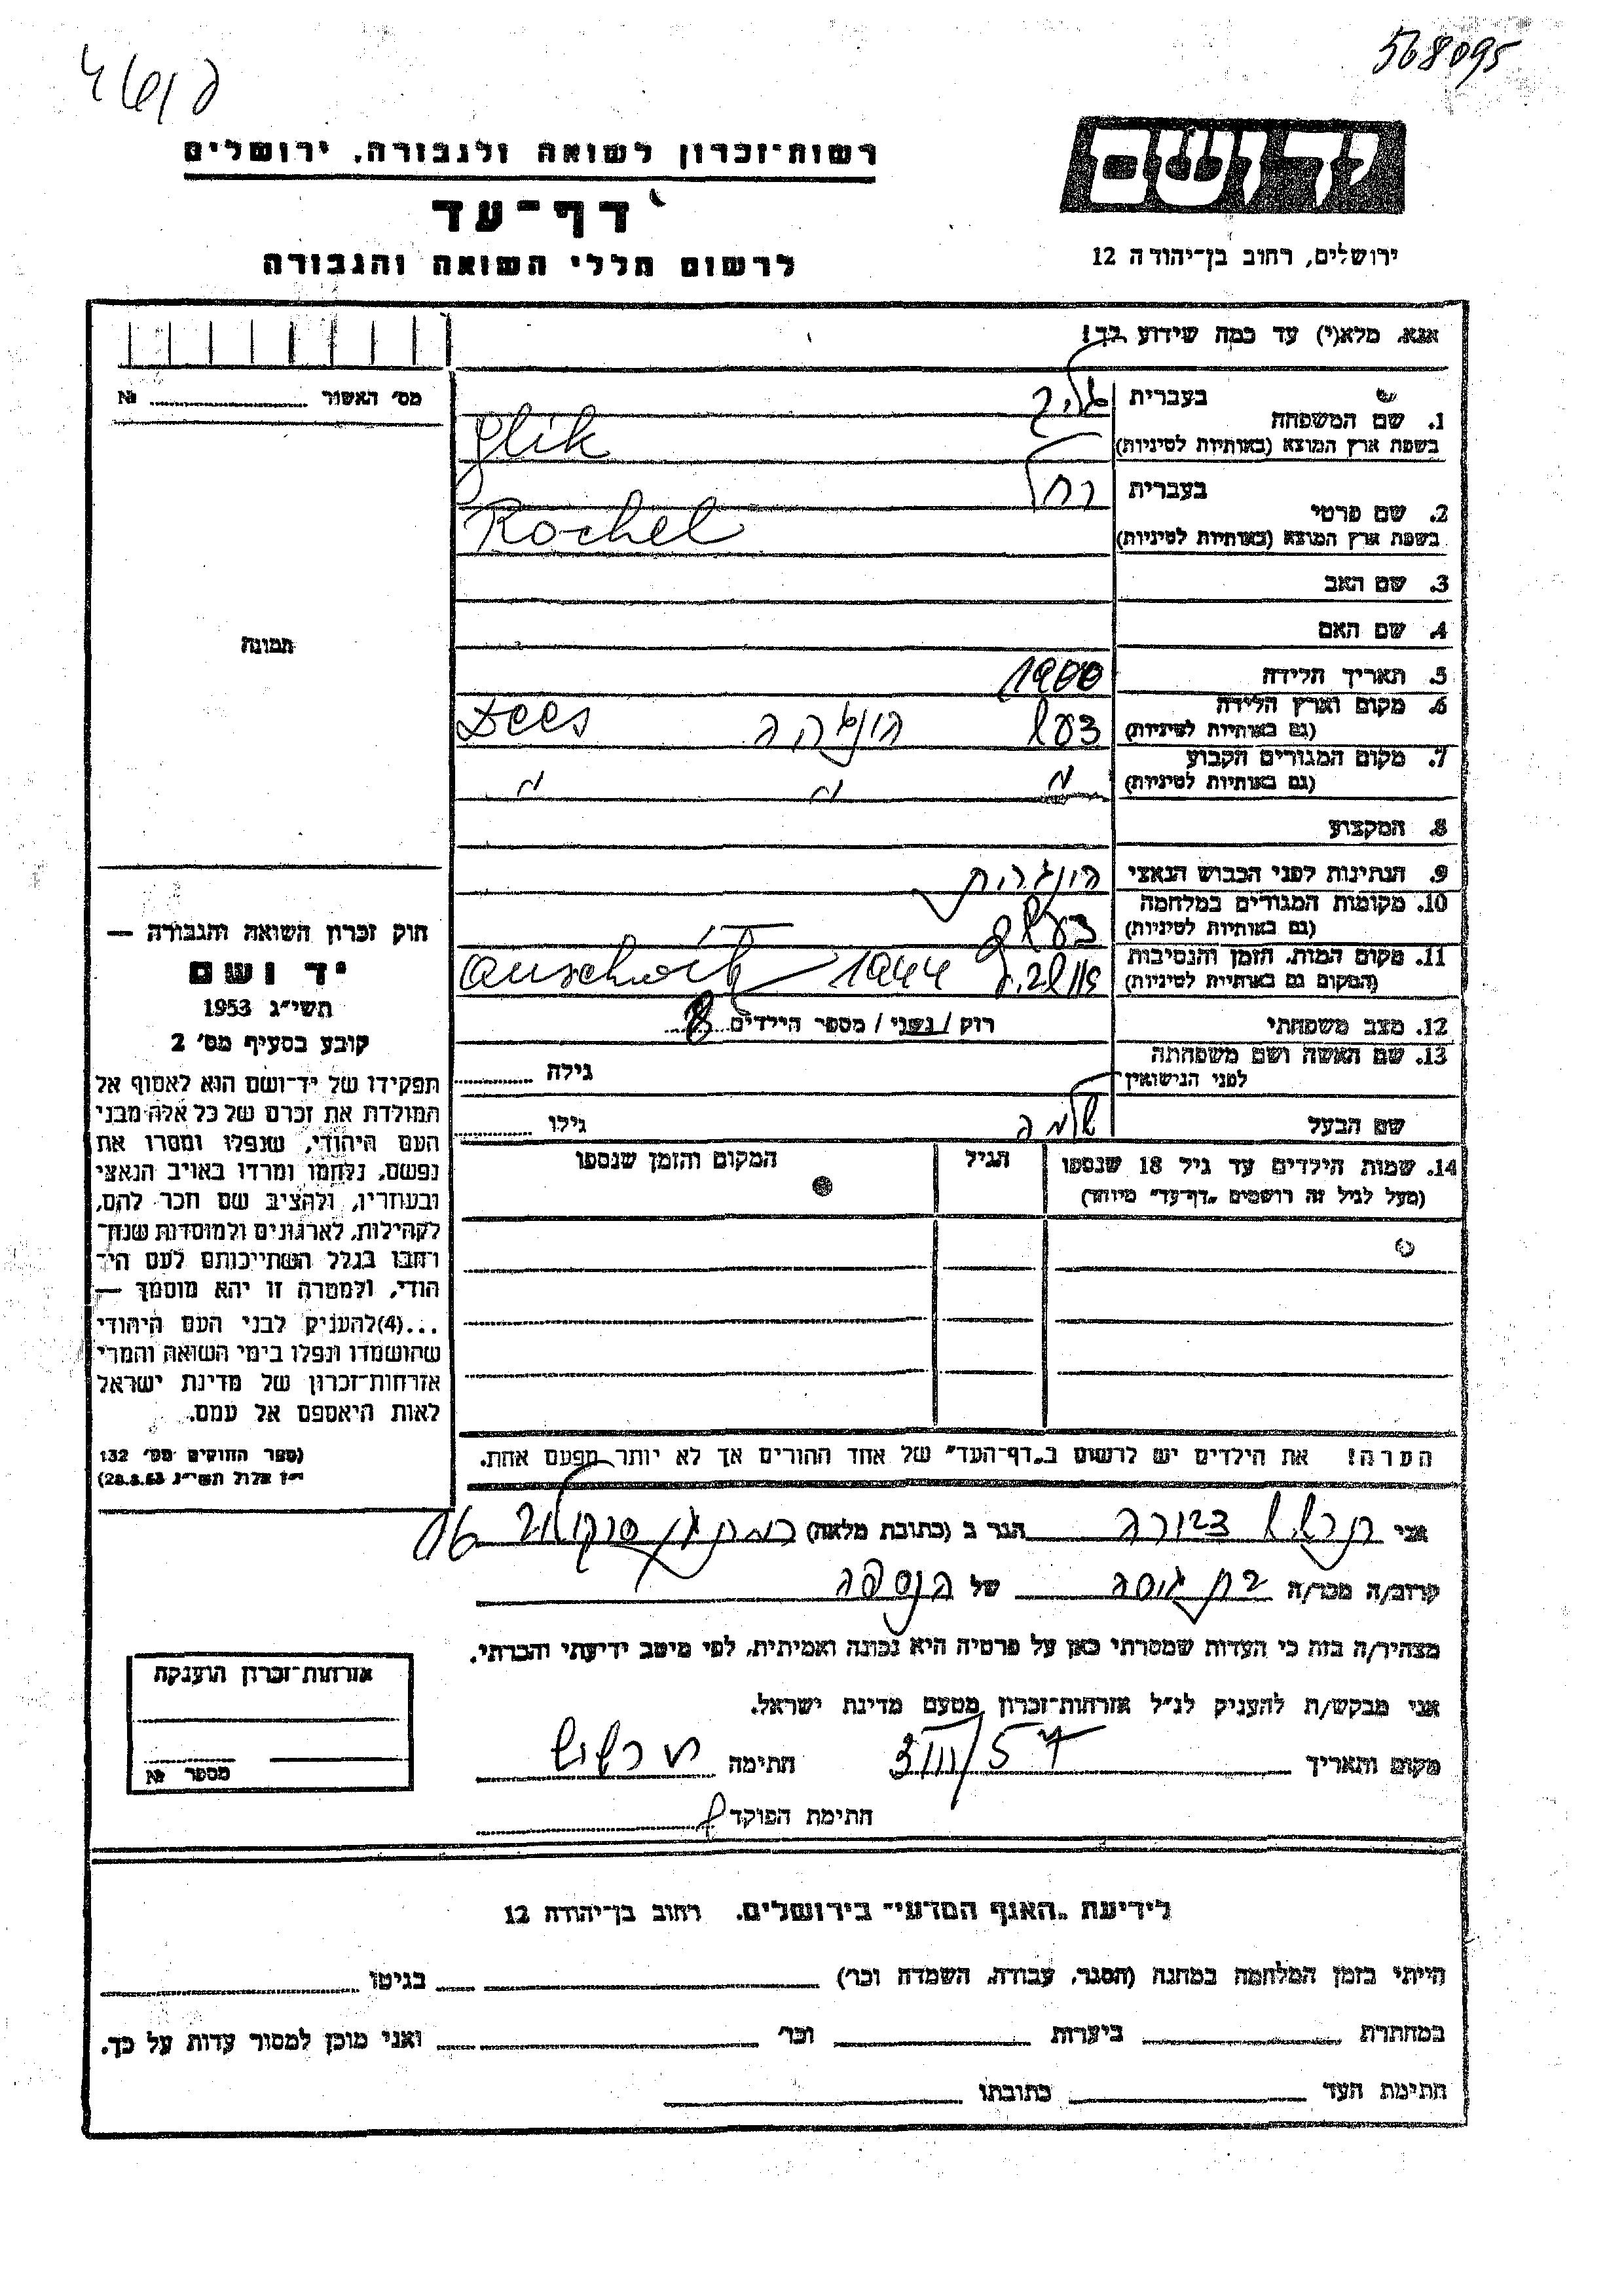 568095
רשות-זכרון לשואה ולגבורה, ירושלים
יד ושם
דף-עד
לרשום חללי השואה והגבורה
ירושלים, רחוב בן-יהודה 12
אנא, מלא(י) עד כמה שידוע לך!
מס' האשור № 
1. שם המשפחה בעברית גליק
בשפת ארץ המוצא (באותיות לטיניות) Glik
2. שם פרטי בעברית רחל
בשפת ארץ המוצא (באותיות לטיניות) Rochel
3. שם האב
4. שם האם
תמונה
5. תאריך הלידה 1900
6. מקום וארץ הלידה
(גם באותיות לטיניות) דעש הונגריה Dees
7. מקום המגורים הקבוע
(גם באותיות לטיניות) " " "
8. המקצוע
9. הנתינות לפני הכבוש הנאצי הונגרית
10. מקומות המגורים במלחמה
(גם באותיות לטיניות) דעש
11. מקום המות, הזמן והנסיבות
(המקום גם באותיות לטיניות) 1944 Auschwitz
12. מצב משפחתי רוק / נשוי / מספר הילדים 8
13. שם האשה ושם משפחתה
לפני הנישואין גילה
שם הבעל שלמה גילו
14. שמות הילדים עד גיל 18 שנספו הגיל המקום והזמן שנספו
(מעל לגיל זה רושמים „דף-עד" מיוחד)
הערה! את הילדים יש לרשום ב„דף-העד" של אחד ההורים אך לא יותר מפעם אחת.
חוק זכרון השואה והגבורה —
יד ושם
תשי"ג 1953
קובע בסעיף מס' 2
תפקידו של יד-ושם הוא לאסוף אל
המולדת את זכרם של כל אלה מבני
העם היהודי, שנפלו ומסרו את
נפשם, נלחמו ומרדו באויב הנאצי
ובעוזריו, ולהציב שם וזכר להם,
לקהילות, לארגונים ולמוסדות שנח-
רבו בגלל השתייכותם לעם היי-
הודי, ולמטרה זו יהא מוסמך —
...(4)להעניק לבני העם היהודי
שהושמדו ונפלו בימי השואה והמרי
אזרחות-זכרון של מדינת ישראל
לאות היאספם אל עמם.
(ספר החוקים מס' 132
י"ז אלול תשי"ג 28.8.53)
אני דבורה הגר ב (כתובת מלאה) רמת גן 16
קרוב/ה מכר/ה בת גיסה של הנספה
מצהיר/ה בזה כי העדות שמסרתי כאן על פרטיה היא נכונה ואמיתית, לפי מיטב ידיעתי והכרתי.
אני מבקש/ת להעניק לנ"ל אזרחות-זכרון מטעם מדינת ישראל.
מקום ותאריך 3/III/57 חתימה
חתימת הפוקד
אזרחות-זכרון הוענקה
מספר №
לידיעת „האגף המדעי" בירושלים, רחוב בן-יהודה 12
הייתי בזמן המלחמה במחנה (הסגר, עבודה, השמדה וכו') בגיטו
במחתרת ביערות וכו' ואני מוכן למסור עדות על כך.
חתימת העד כתובתו